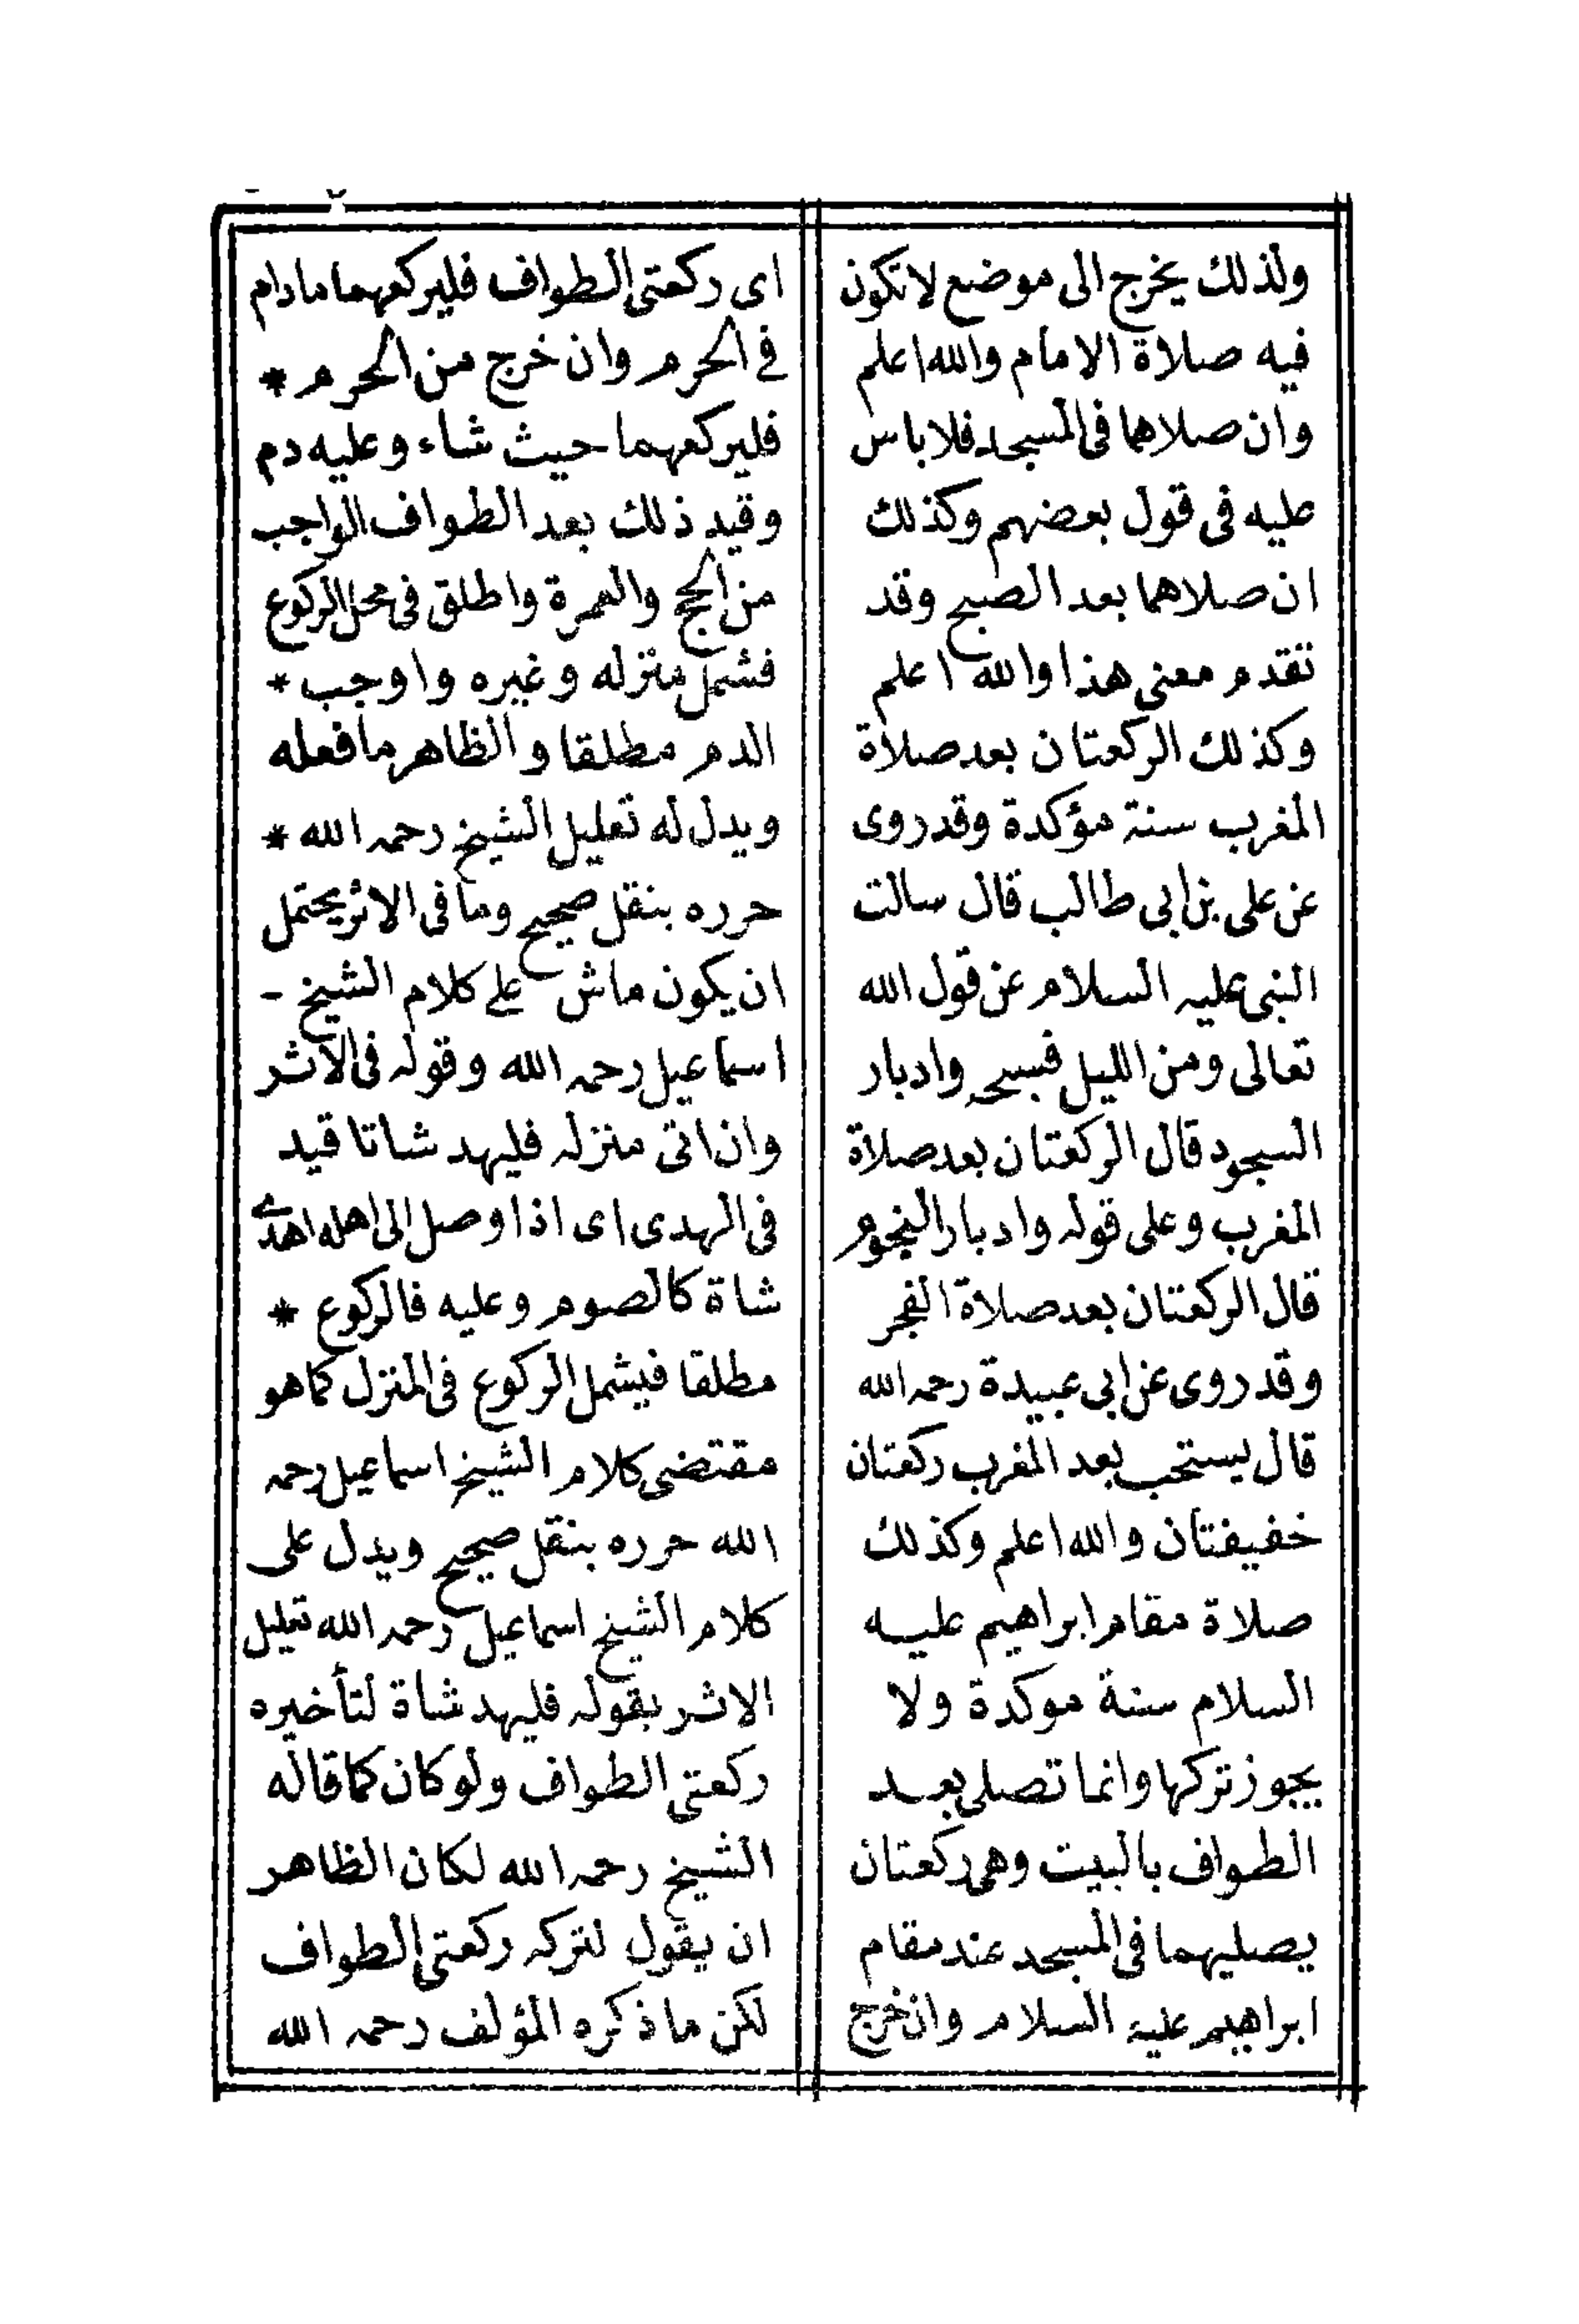 ولذلك يخرج الى موضع لا تكون
فيه صلاة الامام والله اعلم
وان صلاهما فى المسجد فلا باس
عليه فى قول بعضهم وكذلك
ان صلاهما بعد الصبح وقد
تقدم معنى هذا والله اعلم
وكذلك الركعتان بعد صلاة
المغرب سنة مؤكدة وقد روى
عن على بن ابى طالب قال سالت
النبى عليه السلام عن قول الله
تعالى ومن الليل فسبحه وادبار
السجود قال الركعتان بعد صلاة
المغرب وعلى قوله وادبار النجوم
قال الركعتان بعد صلاة الفجر
وقد روى عن ابى عبيدة رحمه الله
قال يستحب بعد المغرب ركعتان
خفيفتان والله اعلم وكذلك
صلاة مقام ابراهيم عليه
السلام سنة موكدة ولا
يجوز تركها وانما تصلى بعد
الطواف بالبيت وهى ركعتان
يصليهما فى المسجد عند مقام
ابراهيم عليه السلام وان خرج
اى ركعتى الطواف فليركعهما مادام
فى الحرم وان خرج من الحرم *
فليركعهما حيث شاء وعليه دم
وقيد ذلك بعد الطواف الواجب
من الحج والعمرة واطلق فى محل الركوع
فشمل منزله وغيره واوجب *
الدم مطلقا والظاهر ما فعله
ويدل له تعليل الشيخ رحمه الله *
حرره بنقل صحيح وما فى الاثر يحتمل
ان يكون ماش على كلام الشيخ -
اسماعيل رحمه الله وقوله فى الاثر
وان اتى منزله فليهد شاتا قيد
فى الهدى اى اذا وصل الى اهله اهدى
شاة كالصوم وعليه فالركوع *
مطلقا فيشمل الركوع فى المنزل كما هو
مقتضى كلام الشيخ اسماعيل رحمه
الله حرره بنقل صحيح ويدل على
كلام الشيخ اسماعيل رحمه الله تعليل
الاثر بقوله فليهد شاة لتأخيره
ركعتى الطواف ولو كان كما قاله
الشيخ رحمه الله لكان الظاهر
ان يقول لتركه ركعتى الطواف
لكن ما ذكره المؤلف رحمه الله